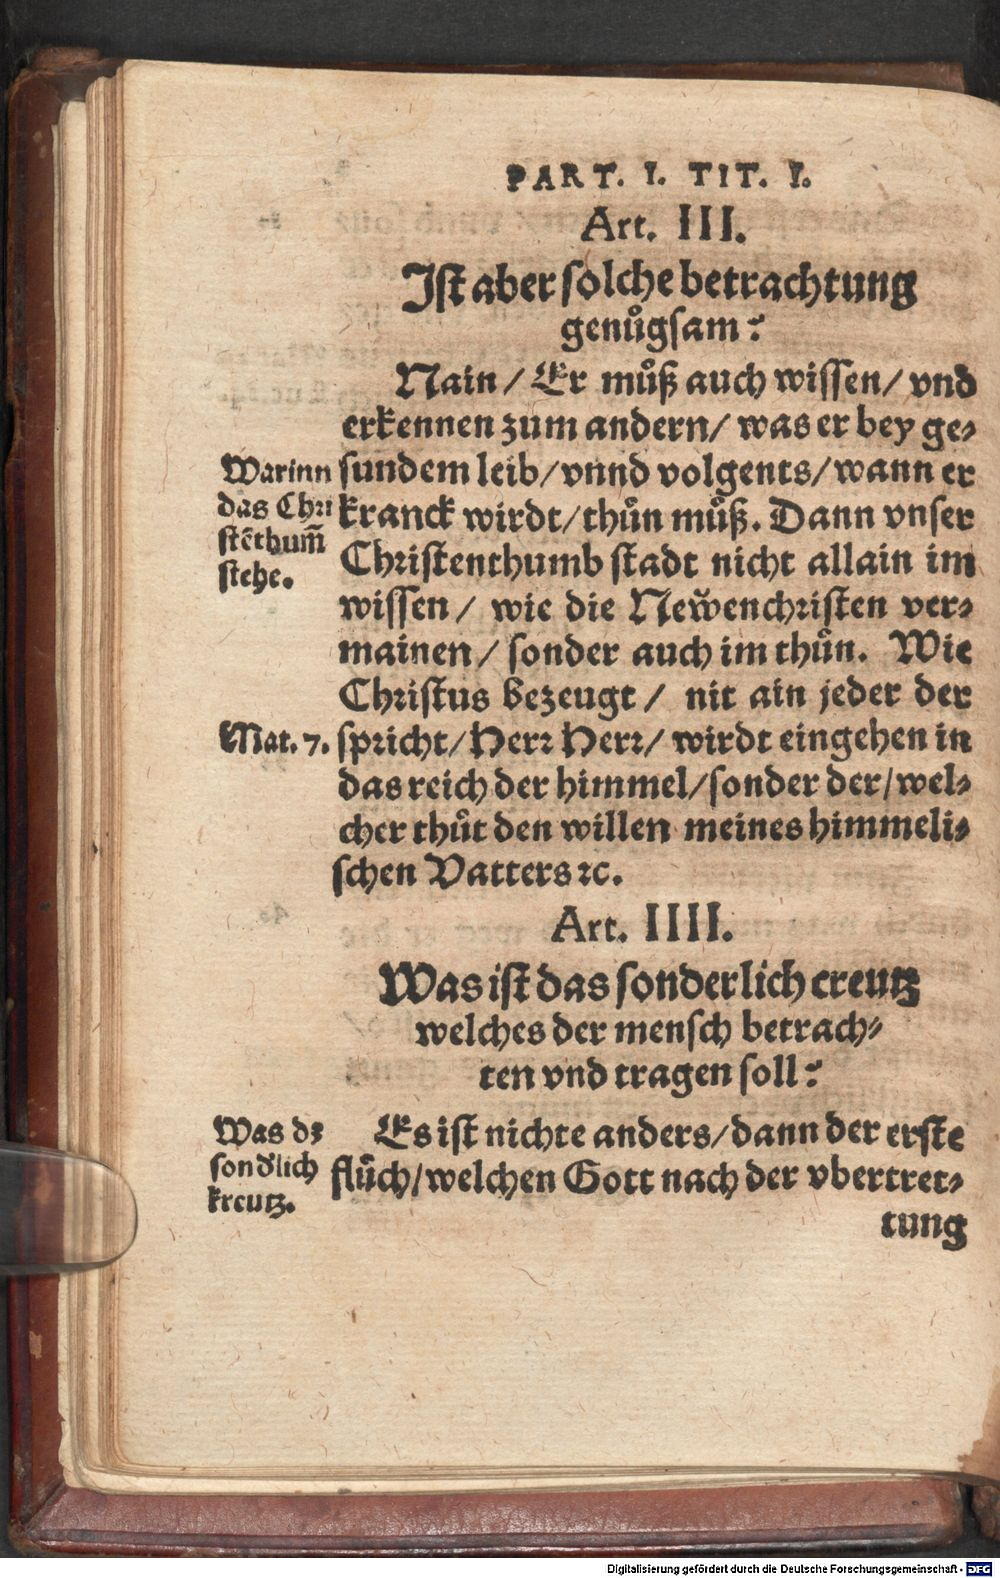 PART. I. TIT. I.
Art. III.
Iſt aber ſolche betrachtung
genuͦgſam?
Nain / Er muͦß auch wiſſen / vnd
erkennen zum andern / was er bey ge⸗
ſundem leib / vnnd volgents / wann er
kranck wirdt / thuͦn muͦß. Dann vnſer
Chꝛiſtenthumb ſtadt nicht allain im
wiſſen / wie die Neẅenchꝛiſten ver⸗
mainen / ſonder auch im thuͦn. Wie
Chꝛiſtus bezeugt / nit ain jeder der
ſpꝛicht / Herꝛ Herꝛ / wirdt eingehen in
das reich der himmel / ſonder der / wel⸗
cher thuͦt den willen meines himmeli⸗
ſchen Vatters ꝛc.
Warinn
das Chꝛi
ſtẽthum̃
ſtehe.
Mat. 7.
Art. IIII.
Was iſt das ſonderlich creutz
welches der menſch betrach⸗
ten vnd tragen ſoll?
Es iſt nichts anders / dann der erſte
fluͦch / welchen Gott nach der vbertret⸗
tung
Was dz
ſond'lich
kreutz.
Digitalisierung gefördert durch die Deutsche Forschungsgemeinschaft - DFG